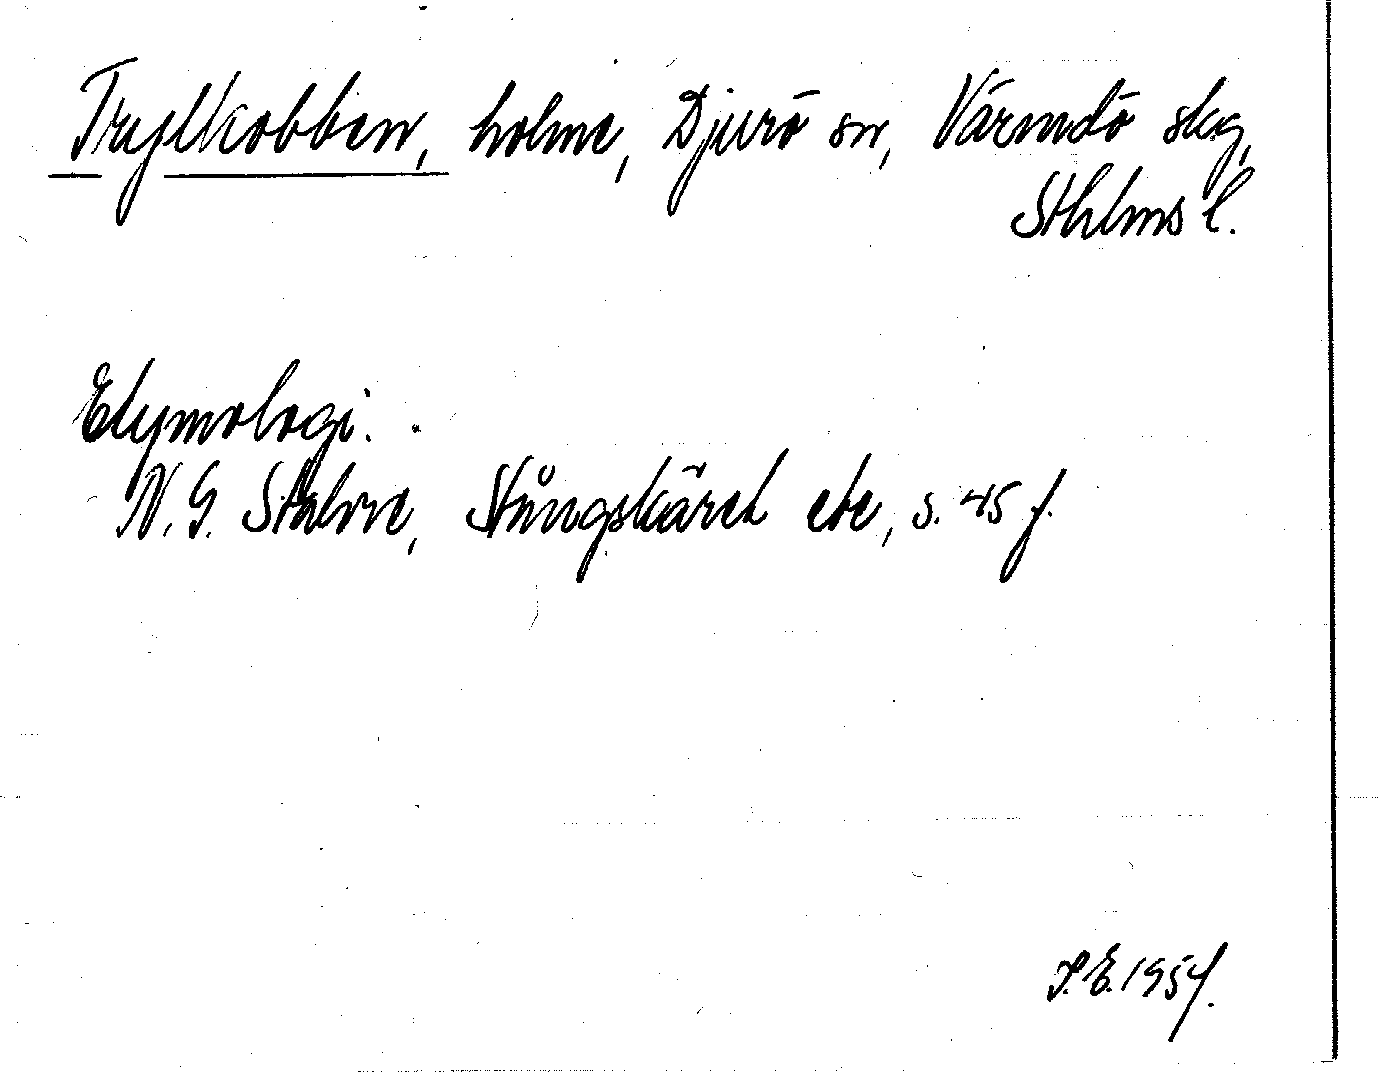 Trylkobben, holme, Djurö sn, Värmdö skg,
Sthlms l.
Etymologi:
N. G. Stahre, Stångskäret etc, s. 45 f.
1954.